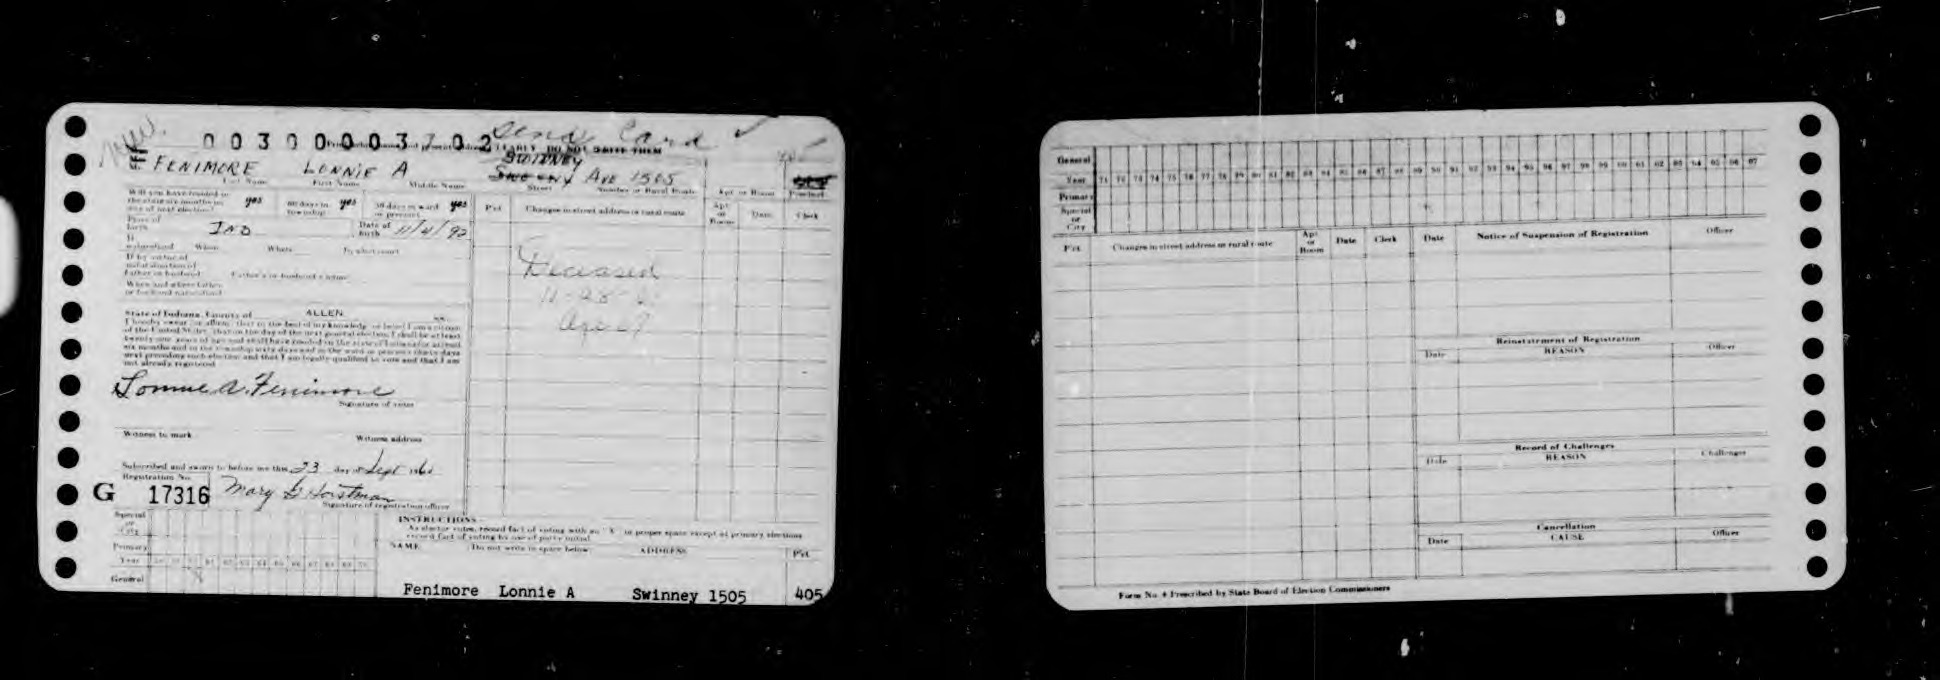 new.
00300003702
Send Card ✓
CLEARLY DO NOT WRITE THEM
SWINNEY
FENIMORE LONNIE A AVE 1505
Last Name First Name Middle Name Street Number or Rural Route Apt or Room Precinct
Will you have resided in the state six months on day of next election? yes 60 days in township yes 30 days in ward or precinct yes
Pct. Changes in street address or rural route Apt or Room Date Clerk
Place of birth IND Date of birth 11/4/92
If naturalized When Where By what court
If by virtue of naturalization of father or husband Father's or husband's name
When and where father or husband naturalized
Deceased
State of Indiana, County of ALLEN ss.
I hereby swear (or affirm) that to the best of my knowledge or belief I am a citizen
of the United States, that on the day of the next general election, I shall be at least
twenty-one years of age and shall have resided in the state of Indiana for at least
six months and in the township sixty days and in the ward or precinct thirty days
next preceding such election and that I am legally qualified to vote and that I am
not already registered
Lonnie A. Fenimore
Signature of voter
Witness to mark Witness address
Subscribed and sworn to before me this 23 day of Sept 1960
Registration No.
G 17316 Mary G Horstman
Signature of registration officer
INSTRUCTIONS
As elector votes, record fact of voting with an "X" in proper space except at primary elections
record fact of voting by use of party initial
Special or City
Primary
Year
General
NAME Do not write in space below ADDRESS Pct.
Fenimore Lonnie A Swinney 1505 405
General
Year 71 72 73 74 75 76 77 78 79 80 81 82 83 84 85 86 87 88 89 90 91 92 93 94 95 96 97 98 99 00 01 02 03 04 05 06 07
Primary
Special or City
Pct. Changes in street address or rural route Apt or Room Date Clerk Date Notice of Suspension of Registration Officer
Reinstatement of Registration
Date REASON Officer
Record of Challenges
Date REASON Challenger
Cancellation
Date CAUSE Officer
Form No. 4 Prescribed by State Board of Election Commissioners